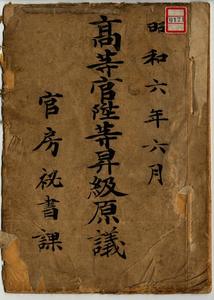 昭和六年六月
高等官陞等昇級原議
官房祕書課